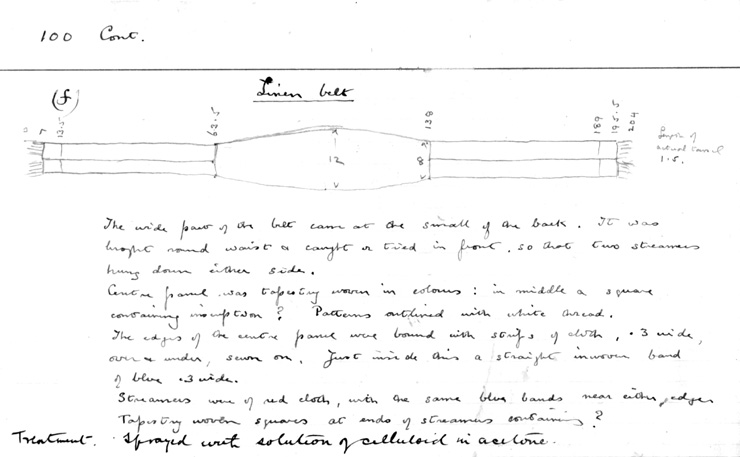 100 Cont.
(f)
Linen belt
0 7 13.5 63.5 138 189 195.5 204
12 8
Length of
actual tassel
1.5.
The wide part of the belt came at the small of the back. It was
broght round waist & caught or tied in front, so that two streamers
hung down either side.
Centre panel was tapestry woven in colours: in middle a square
containing inscription? Patterns outlined with white thread.
The edges of the centre panel were bound with strips of cloth, .3 wide,
over & under, sewn on. Just inside this a straight inwoven band
of blue .3 wide.
Streamers were of red cloth, with the same blue bands near either edges
Tapestry woven squares at ends of streamers containing?
Treatment. Sprayed with solution of celluloid in acetone.